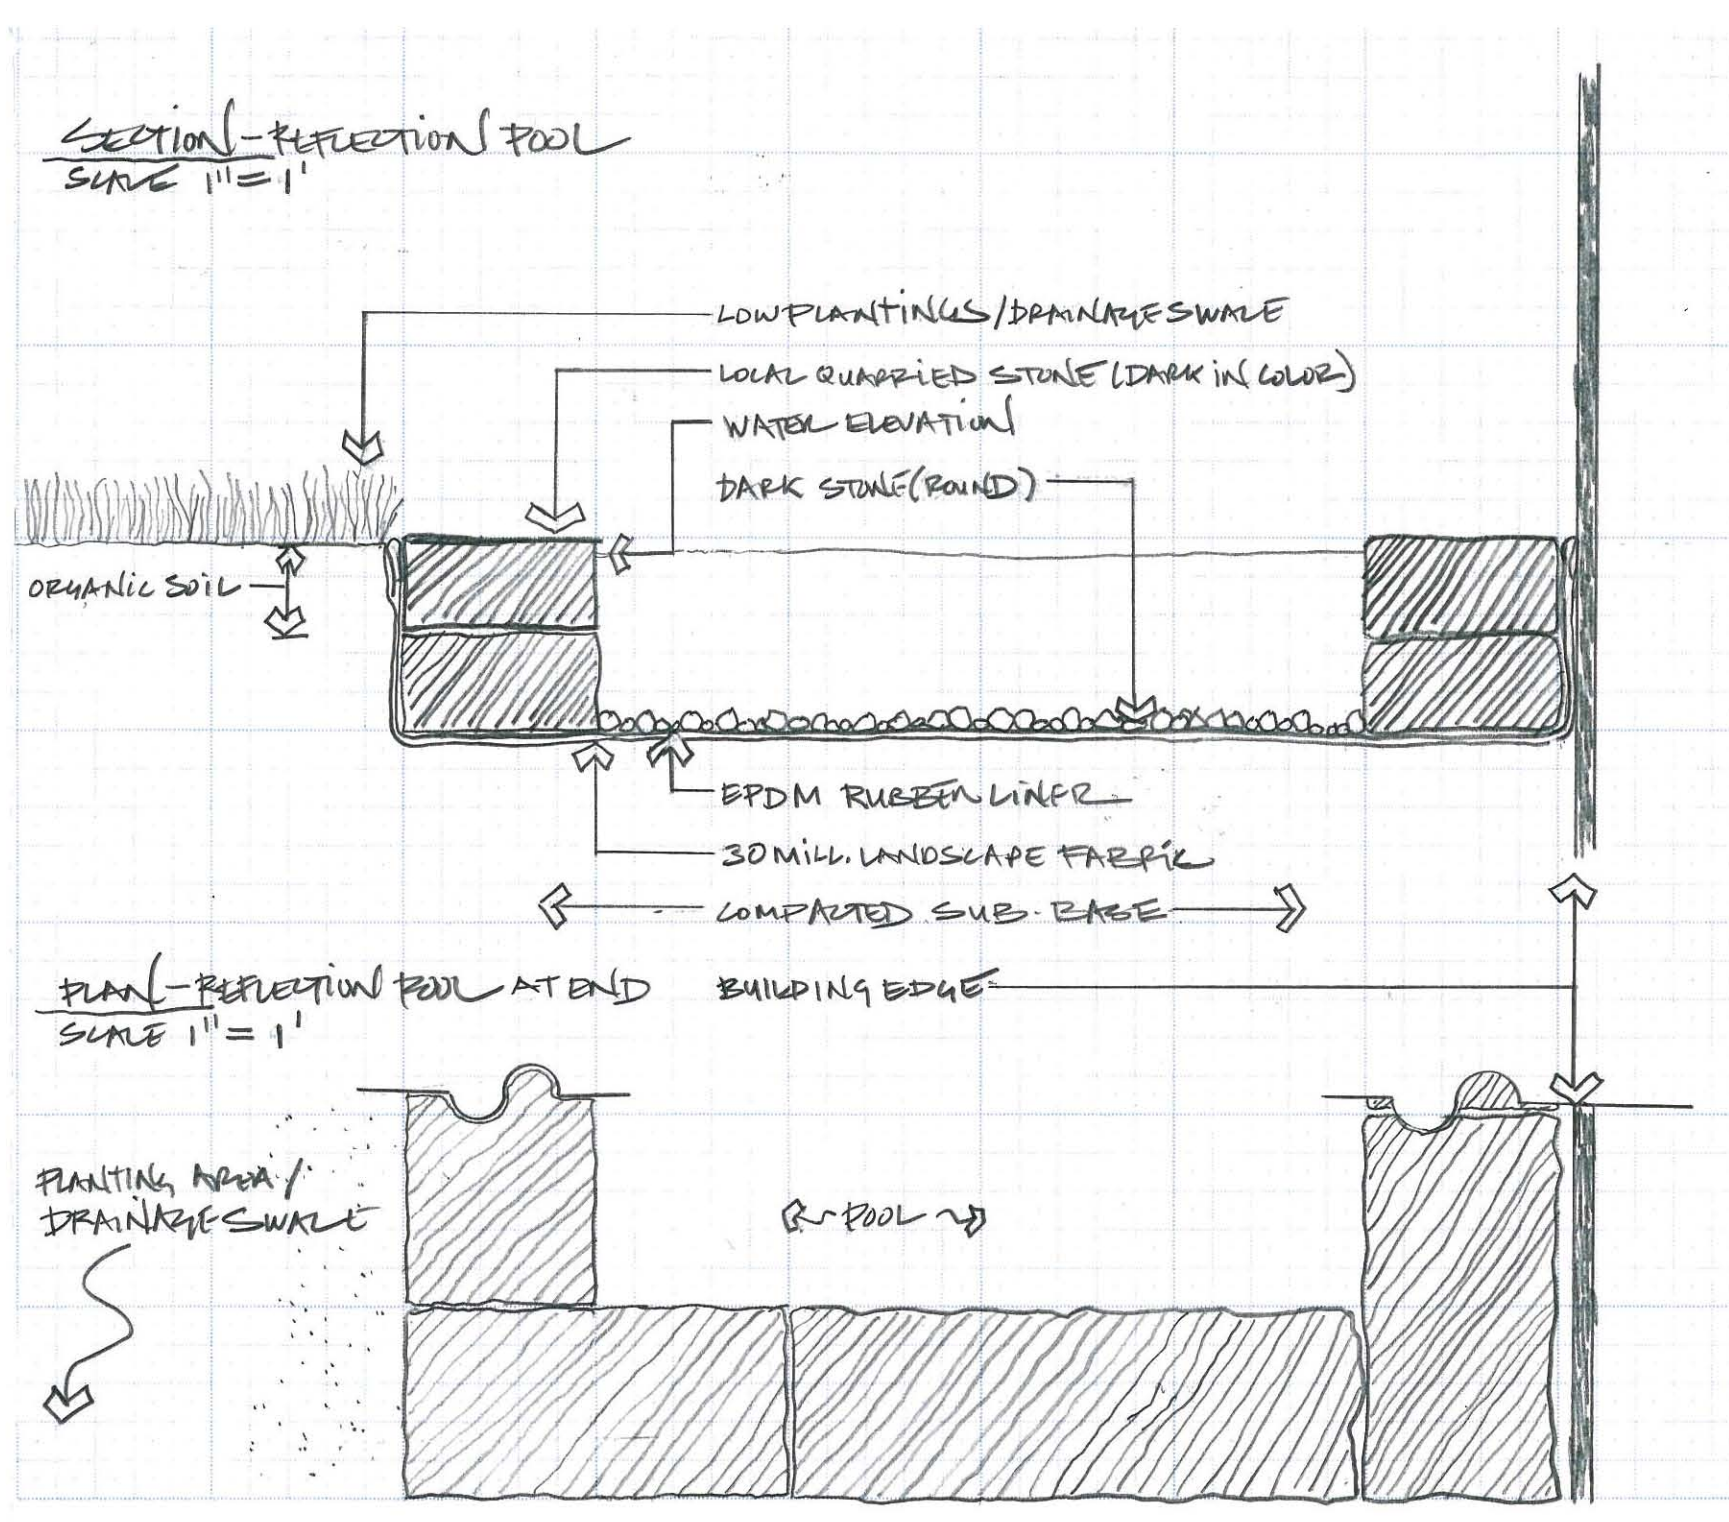 SECTION-REFLECTION POOL
SCALE 1"=1'
LOW PLANTINGS/DRAINAGE SWALE
LOCAL QUARRIED STONE (DARK IN COLOR)
WATER ELEVATION
DARK STONE (ROUND)
ORGANIC SOIL
EPDM RUBBER LINER
30 MILL. LANDSCAPE FABRIC
COMPACTED SUB-BASE
PLAN-REFLECTION POOL AT END
SCALE 1"=1'
BUILDING EDGE
PLANTING AREA/
DRAINAGE SWALE
POOL